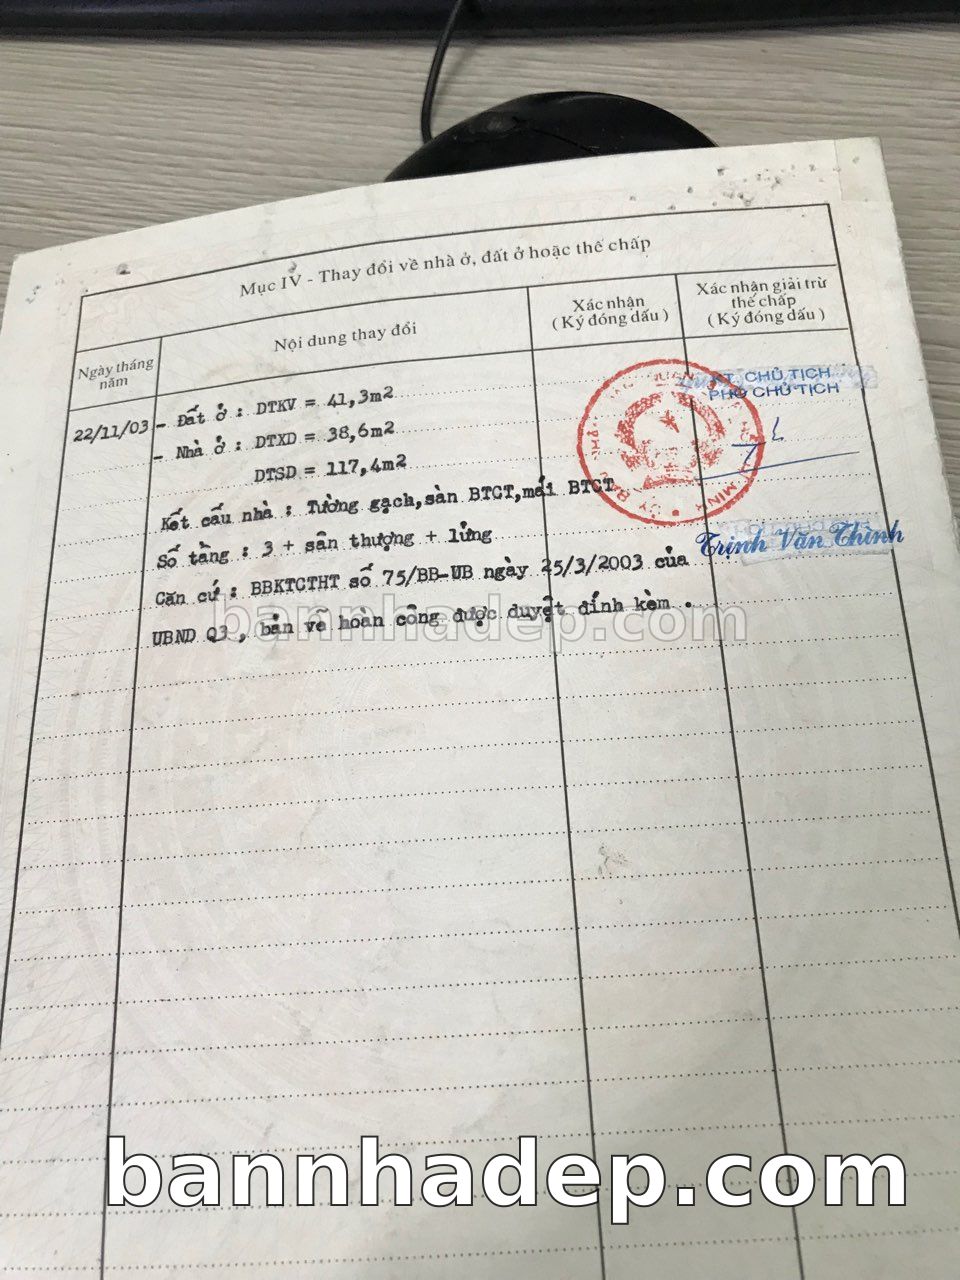 Mục IV - Thay đổi về nhà ở, đất ở hoặc thế chấp
Ngày tháng năm
Nội dung thay đổi
Xác nhận
( Ký đóng dấu )
Xác nhận giải trừ
thế chấp
( Ký đóng dấu )
22/11/03
- Đất ở : DTKV = 41,3m2
- Nhà ở : DTXD = 38,6m2
DTSD = 117,4m2
Kết cấu nhà : Tường gạch,sàn BTCT,mái BTCT
Số tầng : 3 + sân thượng + lửng
Căn cứ : BBKTCTHT số 75/BB-UB ngày 25/3/2003 của
UBND Q3 , bản vẽ hoàn công được duyệt đính kèm .
KT. CHỦ TỊCH
PHÓ CHỦ TỊCH
ỦY BAN MINH
Trịnh Văn Thình
bannhadep.com
bannhadep.com